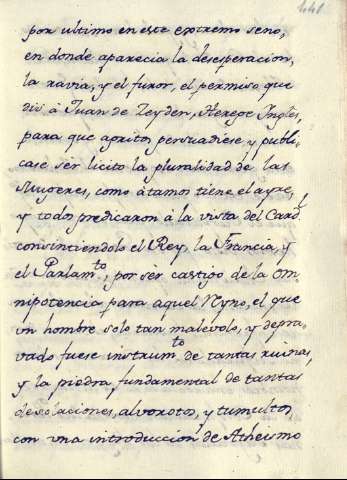 441
por ultimo en este extremo seno,
en donde aparecia la desesperacion,
la ravia, y el furor, el permiso que
dió á Juan de Leyden, Herege Ingles,
para que á gritos persuadiese, y publi-
case ser licito la pluralidad de las
Mugeres, como átamos tiene el ayre,
y todos predicaron á la vista del Card.l
consintiendolo el Rey, la Francia, y
el Parlam.to, por ser castigo de la Om-
nipotencia para aquel Ryno, el que
un hombre solo tan malevolo, y depra-
vado fuese instrum.to de tantas ruinas,
y la piedra fundamental de tantas
desolaciones, alvorotos, y tumultos,
con una introduccion de Atheismo